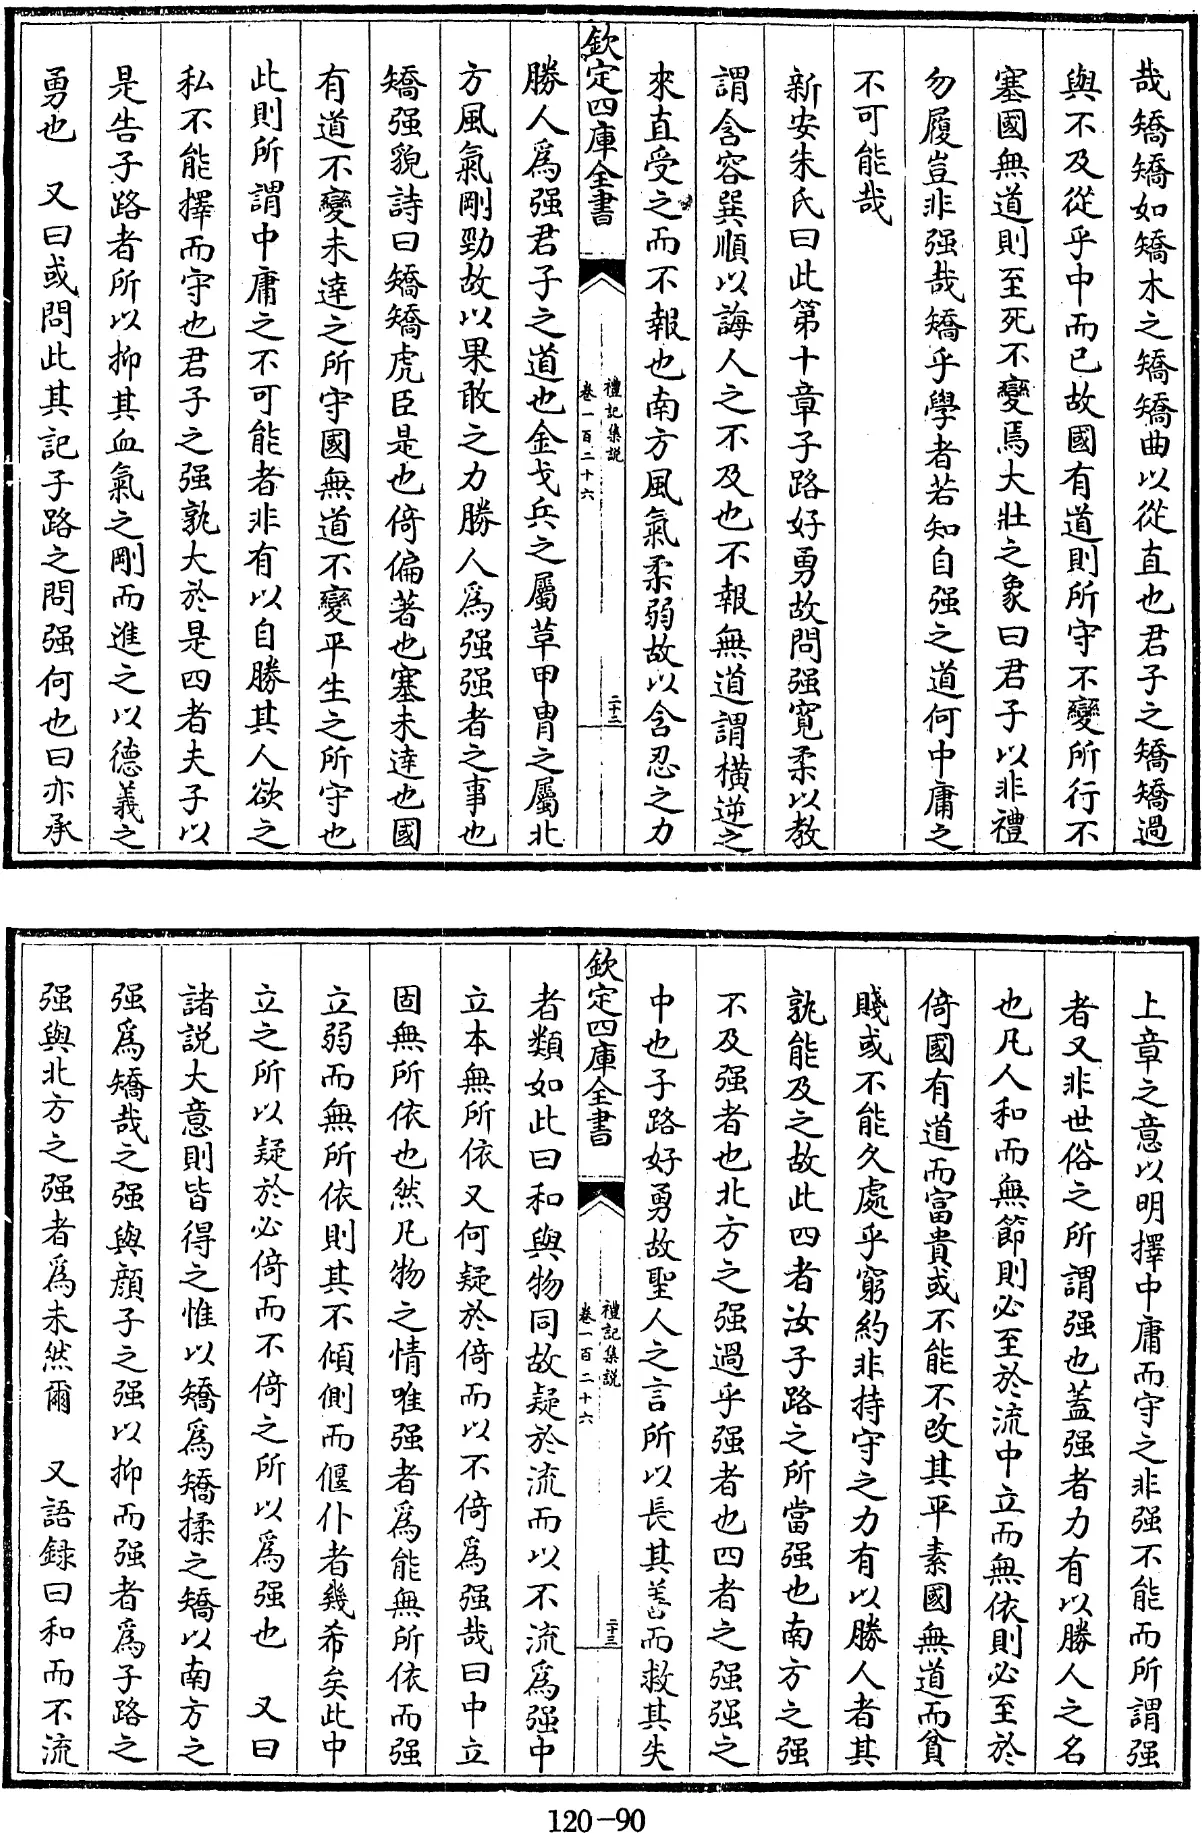 哉矯矯如矯木之矯矯曲以從直也君子之矯矯過
與不及從乎中而已故國有道則所守不變所行不
塞國無道則至死不變焉大壯之象曰君子以非禮
勿履豈非强哉矯乎學者若知自强之道何中庸之
不可能哉
新安朱氏曰此第十章子路好勇故問强寛柔以教
謂含容巽順以誨人之不及也不報無道謂橫逆之
來直受之而不報也南方風氣柔弱故以含忍之力
欽定四庫全書
禮記集説
卷一百二十六
二十二
勝人爲强君子之道也金戈兵之屬草甲冑之屬北
方風氣剛勁故以果敢之力勝人爲强强者之事也
矯强貌詩曰矯矯虎臣是也倚偏著也塞未達也國
有道不變未達之所守國無道不變平生之所守也
此則所謂中庸之不可能者非有以自勝其人欲之
私不能擇而守也君子之强孰大於是四者夫子以
是告子路者所以抑其血氣之剛而進之以德義之
勇也　又曰或問此其記子路之問强何也曰亦承
上章之意以明擇中庸而守之非强不能而所謂强
者又非世俗之所謂强也蓋强者力有以勝人之名
也凡人和而無節則必至於流中立而無依則必至於
倚國有道而富貴或不能不改其平素國無道而貧
賤或不能久處乎窮約非持守之力有以勝人者其
孰能及之故此四者汝子路之所當强也南方之强
不及强者也北方之强過乎强者也四者之强强之
中也子路好勇故聖人之言所以長其善而救其失
欽定四庫全書
禮記集説
卷一百二十六
二十三
者類如此曰和與物同故疑於流而以不流爲强中
立本無所依又何疑於倚而以不倚爲强哉曰中立
固無所依也然凡物之情唯强者爲能無所依而强
立弱而無所依則其不傾側而偃仆者幾希矣此中
立之所以疑於必倚而不倚之所以爲强也　又曰
諸説大意則皆得之惟以矯爲矯揉之矯以南方之
强爲矯哉之强與顔子之强以抑而强者爲子路之
强與北方之强者爲未然爾　又語録曰和而不流
120-90